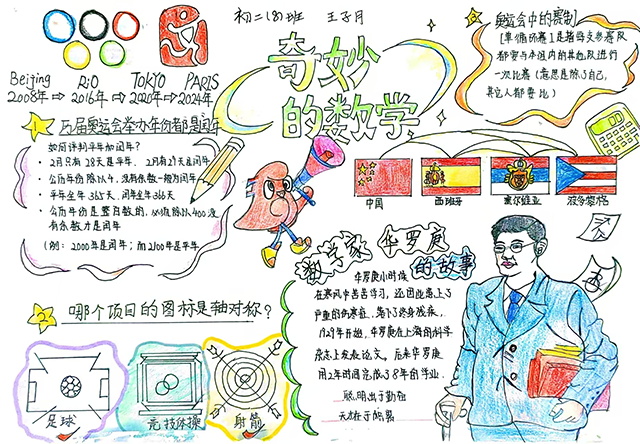 初二(8)班 王子月
奇妙
的数学
Beijing RiO TOKYO PARIS
2008年⇨2016年⇨2020年⇨2024年
1 历届奥运会举办年份都是闰年
如何评判平年和闰年?
• 2月只有28天是平年. 2月有29天是闰年
• 公历年份除以4,没有余数一般为闰年
• 平年全年365天,闰年全年366天
• 公历年份是整百数的,必须除以400没
有余数才是闰年
(例:2000年是闰年;而2100年是平年
2 哪个项目的图标是轴对称?
足球 竞技体操 射箭
3 奥运会中的赛制
[单循环赛]是指每支参赛队
都要与本组内的其他队进行
一次比赛(意思是除了自己,
其它人都要比)
中国 西班牙 塞尔维亚 波多黎各
数学家 华罗庚
的故事
华罗庚小时候
在寒风中苦苦学习,还因此患上了
严重的伤寒症,落下了终身残疾.
1929年开始,华罗庚在上海的科学
杂志上发表论文。后来华罗庚
用2年时间完成了8年的学业.
聪明出于勤奋
天才在于积累